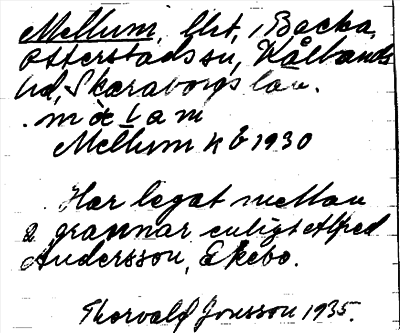 Mellum, lht, i Backa,
Otterstads sn, Kållands
hd, Skaraborgs län.
mèlam
Mellum k b 1930
Har legat mellan
2 grannar enligt Alfred
Andersson, Ekebo.
Thorvald Jonsson 1935.